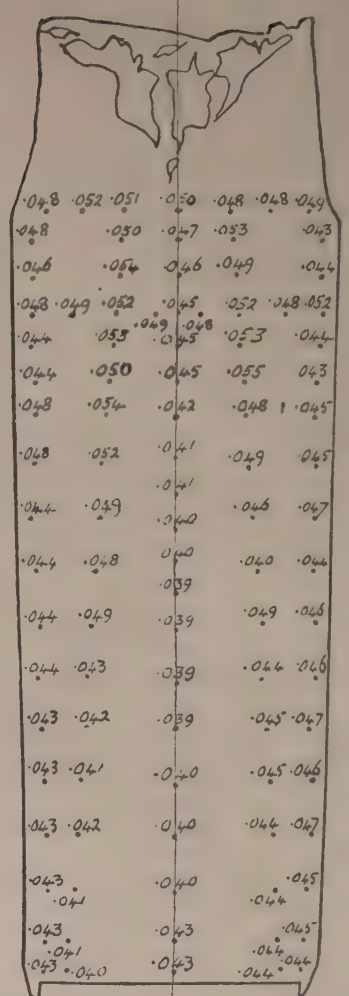 .048 .052 .051 .050 .048 .048 .049
.048 .050 .047 .053 .043
.046 .054 .046 .049 .044
.048 .049 .052 .045 .052 .048 .052
.049 .048
.044 .053 .045 .053 .044
.044 .050 .045 .055 .043
.048 .054 .042 .048 .045
.048 .052 .041 .049 .045
.041
.044 .049 .040 .046 .047
.044 .048 .040 .040 .044
.039
.044 .049 .039 .049 .046
.044 .043 .039 .044 .046
.043 .042 .039 .045 .047
.043 .041 .040 .045 .046
.043 .042 .040 .044 .047
.043 .040 .045
.041 .044
.043 .043 .045
.041 .044
.043 .040 .043 .044 .044